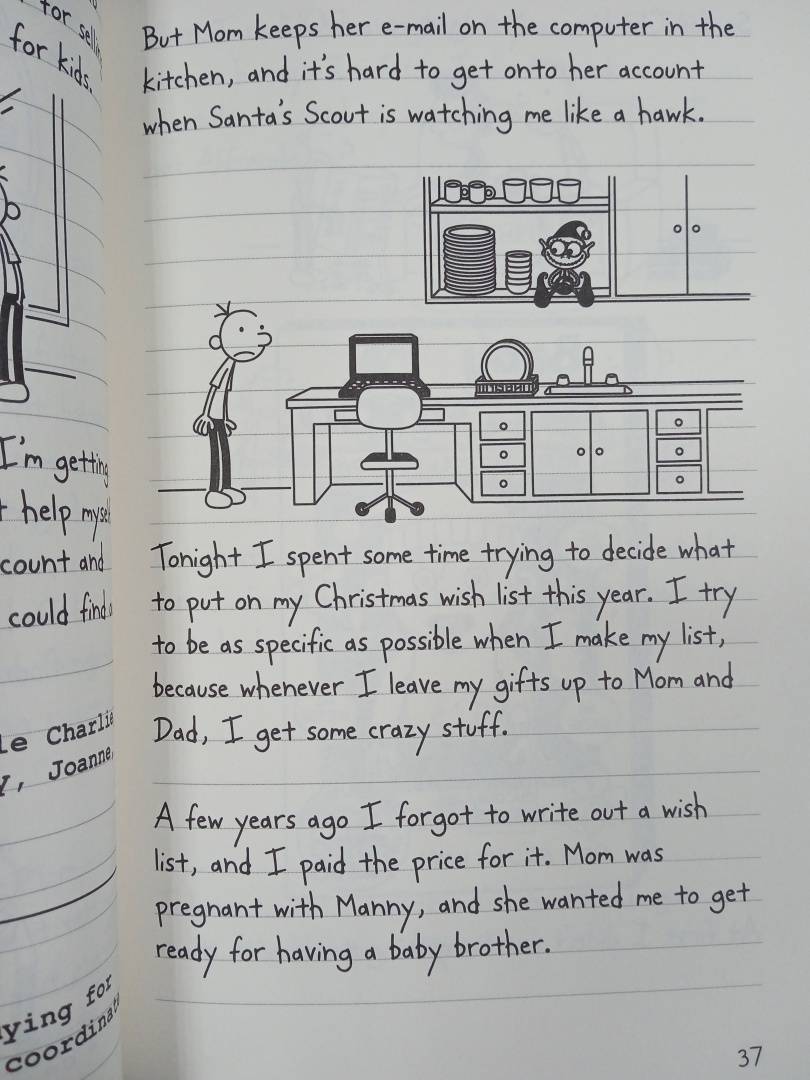 for
for kids.
I'm getting
help
count and
could find
Charlie
Joanne,
ying for
But Mom keeps her e-mail on the computer in the
kitchen, and it's hard to get onto her account
when Santa's Scout is watching me like a hawk.
Tonight I spent some time trying to decide what
to put on my Christmas wish list this year. I try
to be as specific as possible when I make my list,
because whenever I leave my gifts up to Mom and
Dad, I get some crazy stuff.
A few years ago I forgot to write out a wish
list, and I paid the price for it. Mom was
pregnant with Manny, and she wanted me to get
ready for having a baby brother.
37